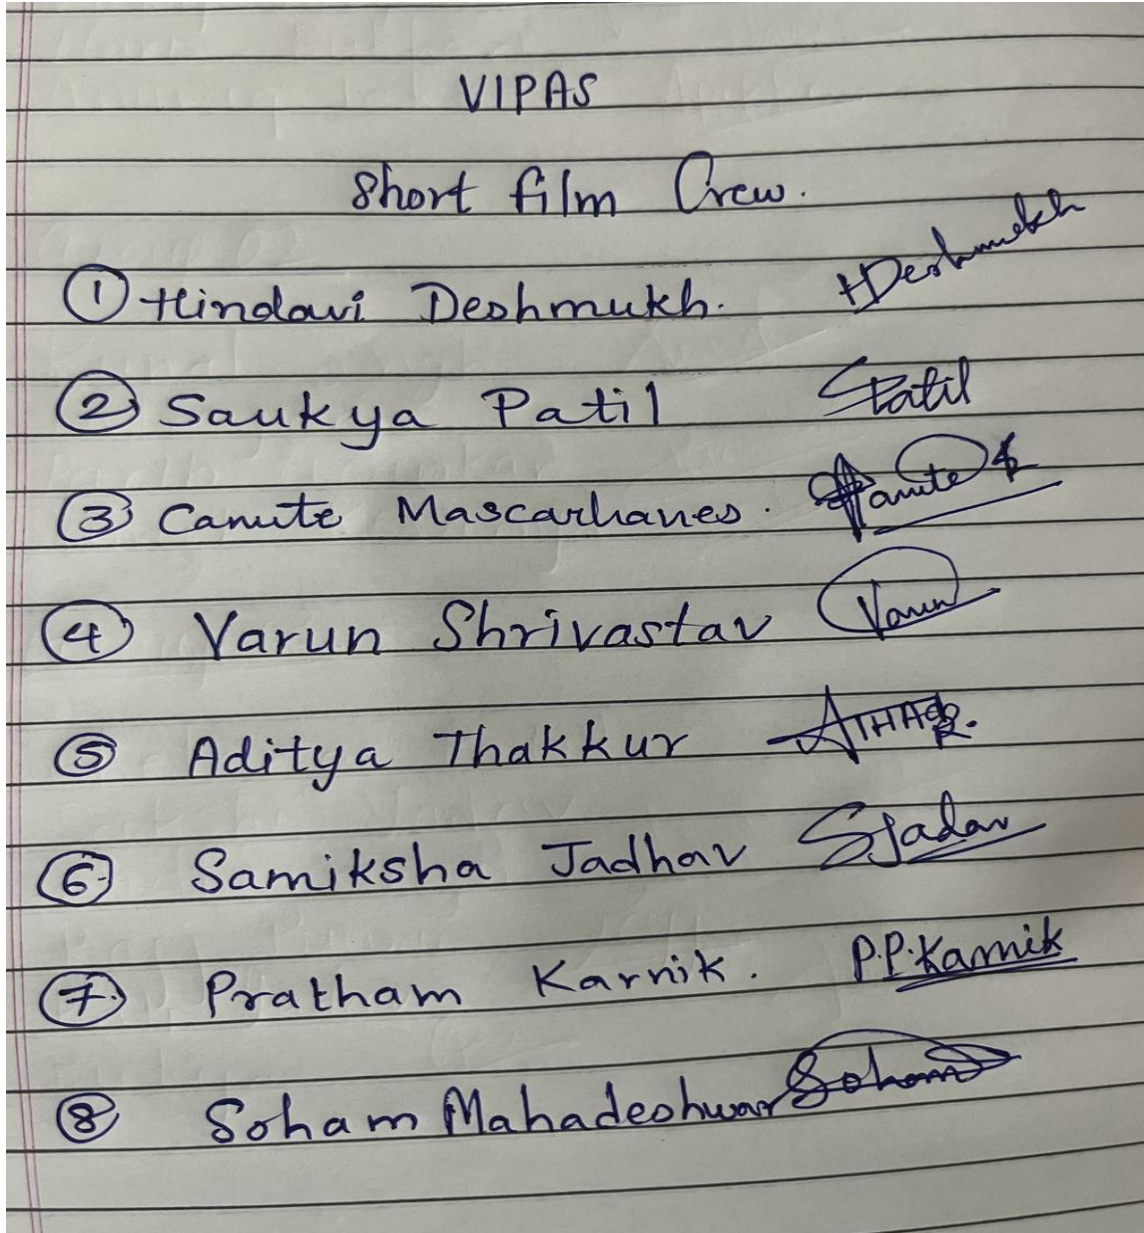 VIPAS
Short film Crew.
① Hindavi Deshmukh. HDeshmukh
② Saukya Patil SPatil
③ Canute Mascarhanes. Canute
④ Varun Shrivastav Varun
⑤ Aditya Thakkur ATHAK
⑥ Samiksha Jadhav SJadav
⑦ Pratham Karnik. P.P.Karnik
⑧ Soham Mahadeshwar Soham